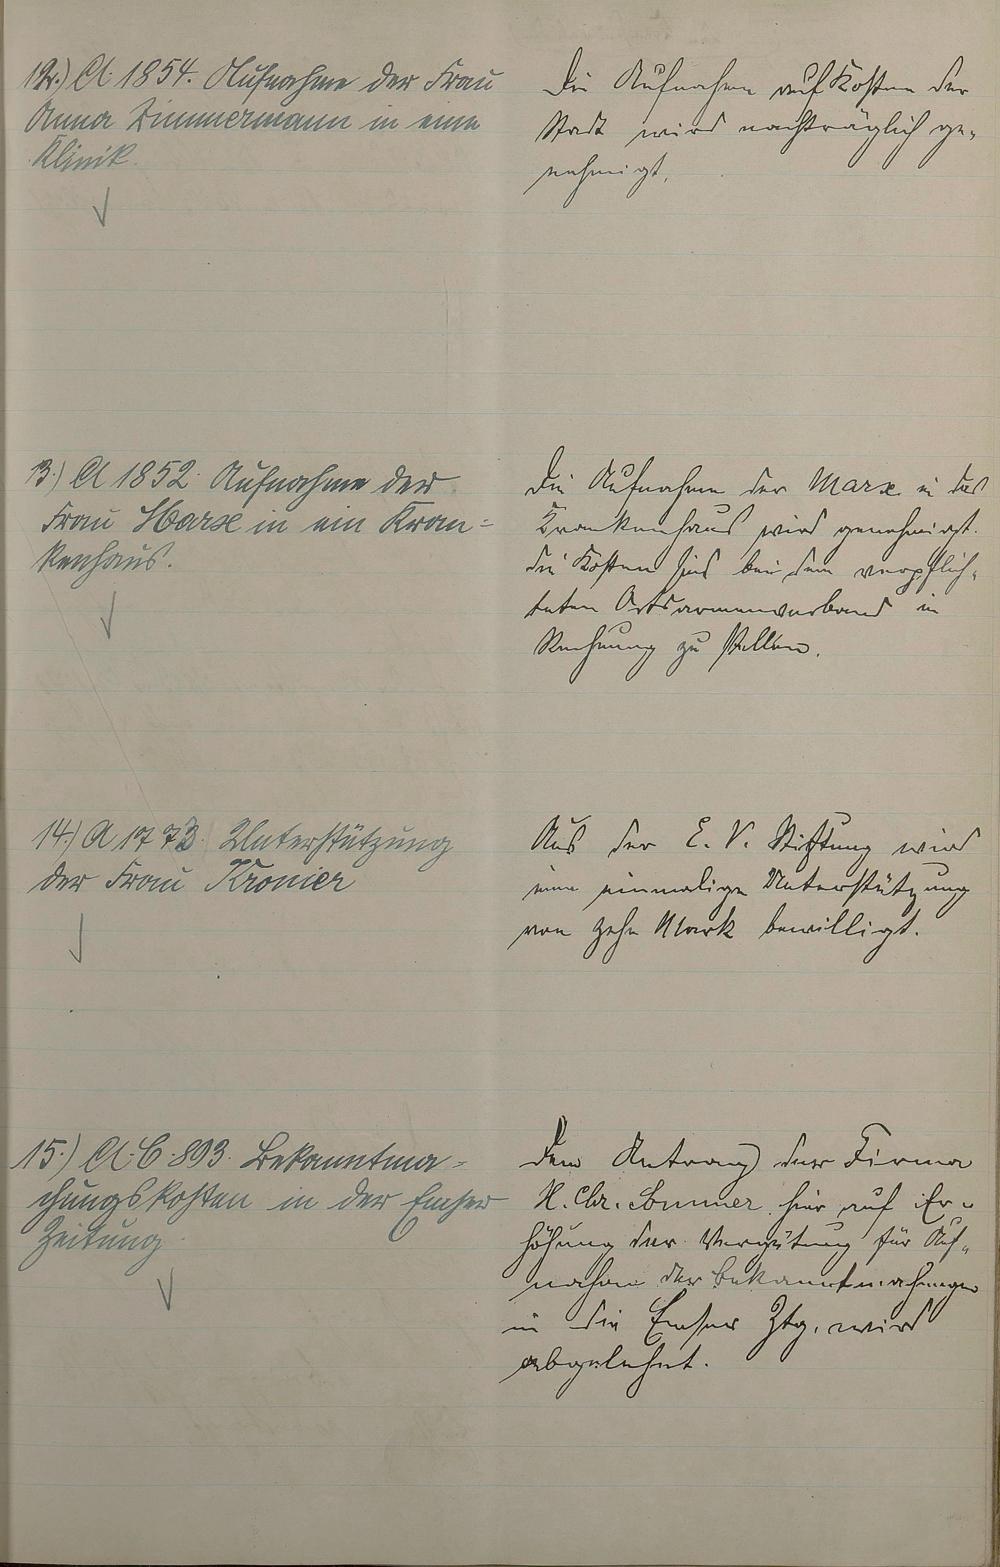 12.) A. 1854. Aufnahme der Frau
Anna Zimmermann in eine
Klinik.
Die Aufnahme auf Kosten der
Stadt wird nachträglich ge-
nehmigt.
13.) A 1852. Aufnahme der
Frau Marx in ein Kran-
kenhaus.
Die Aufnahme der Marx in das
Krankenhaus wird genehmigt.
die Kosten sind bei dem verpflich-
teten Ortsarmenverband in
Rechnung zu stellen.
14.) A 1773. Unterstützung
der Frau Kronier
Aus der E. V. Stiftung wird
eine einmalige Unterstützung
von zehn Mark bewilligt.
15.) A. C. 893. Bekanntma-
chungskosten in der Emser
Zeitung
Dem Antrag der Firma
H. Chr. Sommer hier auf Er-
höhung der Vergütung für Auf-
nahme der Bekanntmachungen
in die Emser Ztg. wird
abgelehnt.